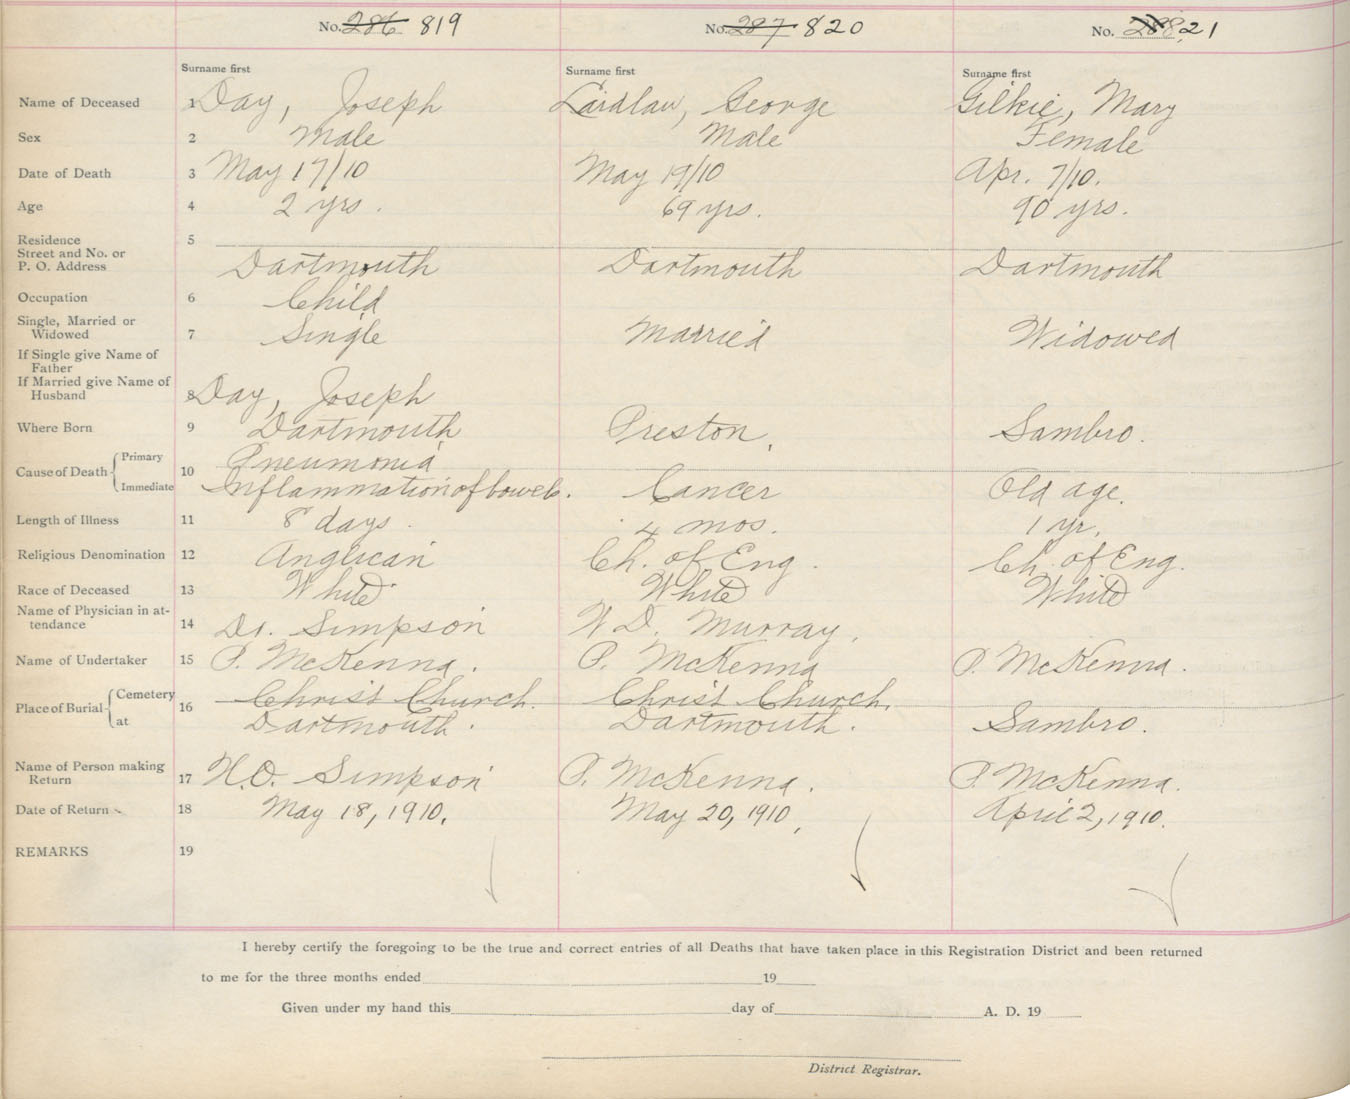 No. 286 819 No. 287 820 No. 288 21
Surname first Surname first Surname first
Name of Deceased 1 Day, Joseph Laidlaw, George Gilkie, Mary
Sex 2 Male Male Female
Date of Death 3 May 17/10 May 19/10 Apr. 7/10.
Age 4 2 yrs. 69 yrs. 90 yrs.
Residence 5
Street and No. or
P. O. Address Dartmouth Dartmouth Dartmouth
Occupation 6 Child
Single, Married or
Widowed 7 Single Married Widowed
If Single give Name of
Father
If Married give Name of
Husband 8 Day, Joseph
Where Born 9 Dartmouth Preston, Sambro.
Cause of Death { Primary 10 Pneumonia
Immediate Inflammation of bowels. Cancer Old age.
Length of Illness 11 8 days. 4 mos. 1 yr.
Religious Denomination 12 Anglican Ch. of Eng. Ch. of Eng.
Race of Deceased 13 White White White
Name of Physician in at-
tendance 14 Dr. Simpson W D. Murray.
Name of Undertaker 15 P. McKenna. P. McKenna P. McKenna.
Place of Burial { Cemetery 16 Christ Church. Christ Church,
at Dartmouth. Dartmouth. Sambro.
Name of Person making
Return 17 H.O. Simpson P. McKenna. P. McKenna.
Date of Return 18 May 18, 1910. May 20, 1910, April 2, 1910.
REMARKS 19
I hereby certify the foregoing to be the true and correct entries of all Deaths that have taken place in this Registration District and been returned
to me for the three months ended 19
Given under my hand this day of A. D. 19
District Registrar.